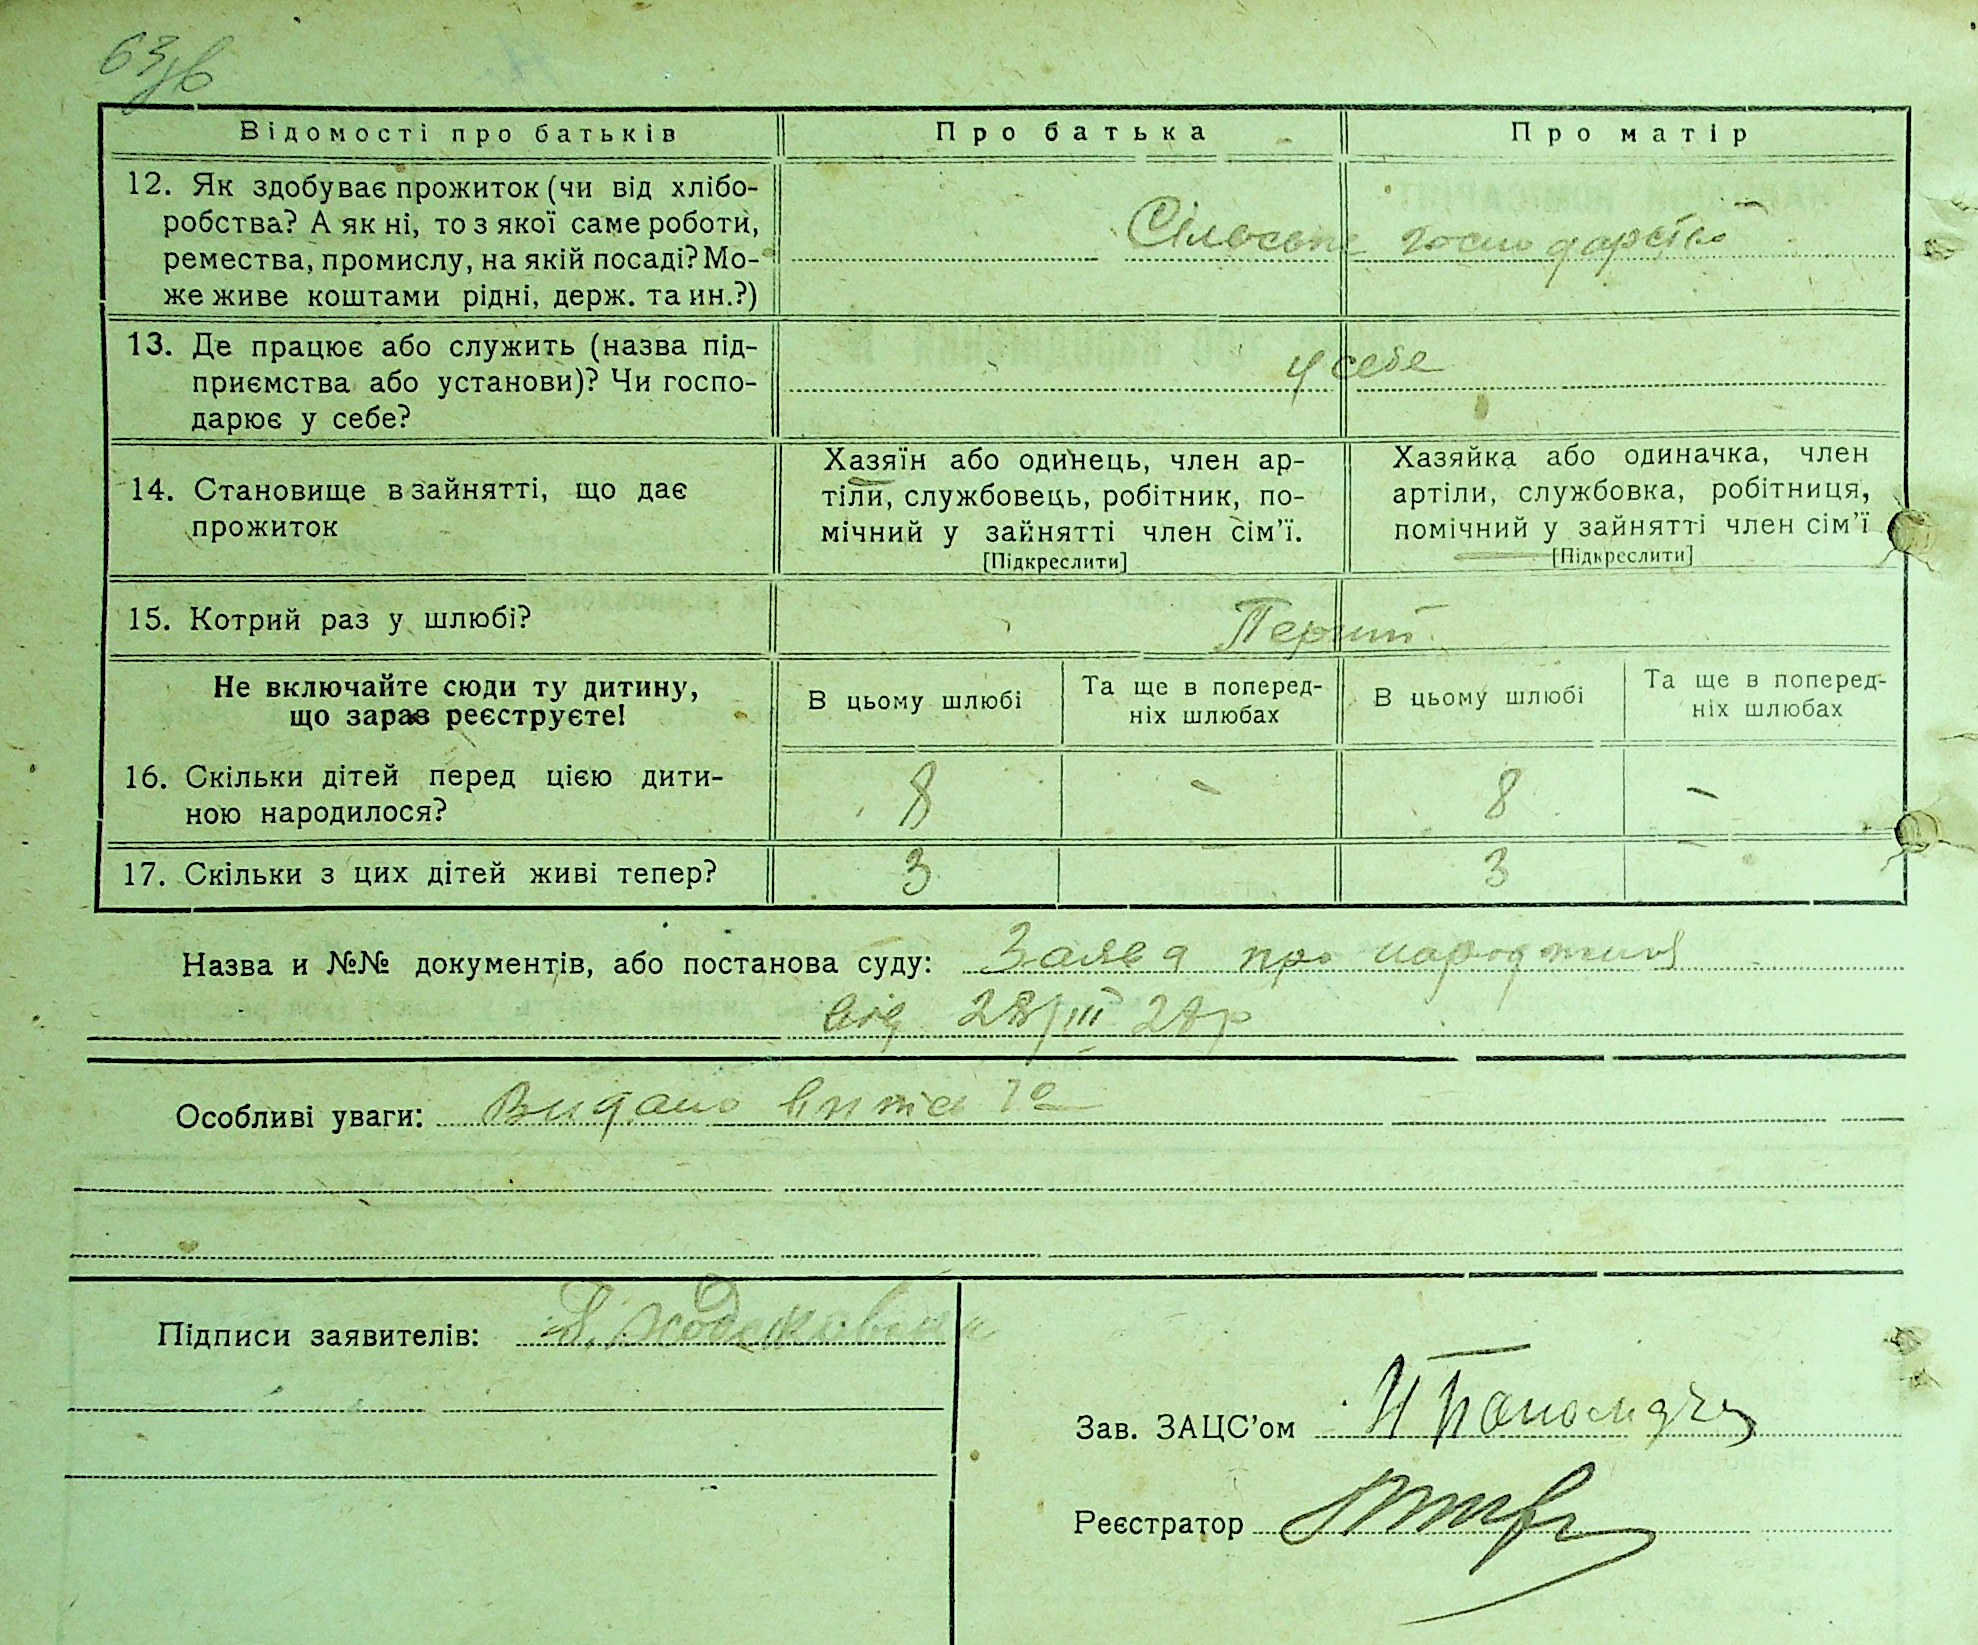 63зв
Відомості про батьків
Про батька
Про матір
12. Як здобуває прожиток (чи від хлібо-
робства? А як ні, то з якої саме роботи,
ремества, промислу, на якій посаді? Мо-
же живе коштами рідні, держ. та ин.?)
Сільське господарство
13. Де працює або служить (назва під-
приємства або установи)? Чи госпо-
дарює у себе?
у себе
14. Становище в зайнятті, що дає
прожиток
Хазяїн або одинець, член ар-
тіли, службовець, робітник, по-
мічний у зайнятті член сім’ї.
[Підкреслити]
Хазяйка або одиначка, член
артіли, службовка, робітниця,
помічний у зайнятті член сім’ї
[Підкреслити]
15. Котрий раз у шлюбі?
Перший
Не включайте сюди ту дитину,
що зараз реєструєте!
В цьому шлюбі
Та ще в поперед-
ніх шлюбах
В цьому шлюбі
Та ще в поперед-
ніх шлюбах
16. Скільки дітей перед цією дити-
ною народилося?
8 - 8 -
17. Скільки з цих дітей живі тепер?
3 - 3 -
Назва и №№ документів, або постанова суду: Заява про народження
від 28/III 28р
Особливі уваги: Видано
Підписи заявителів:
Зав. ЗАЦС’ом
Реєстратор